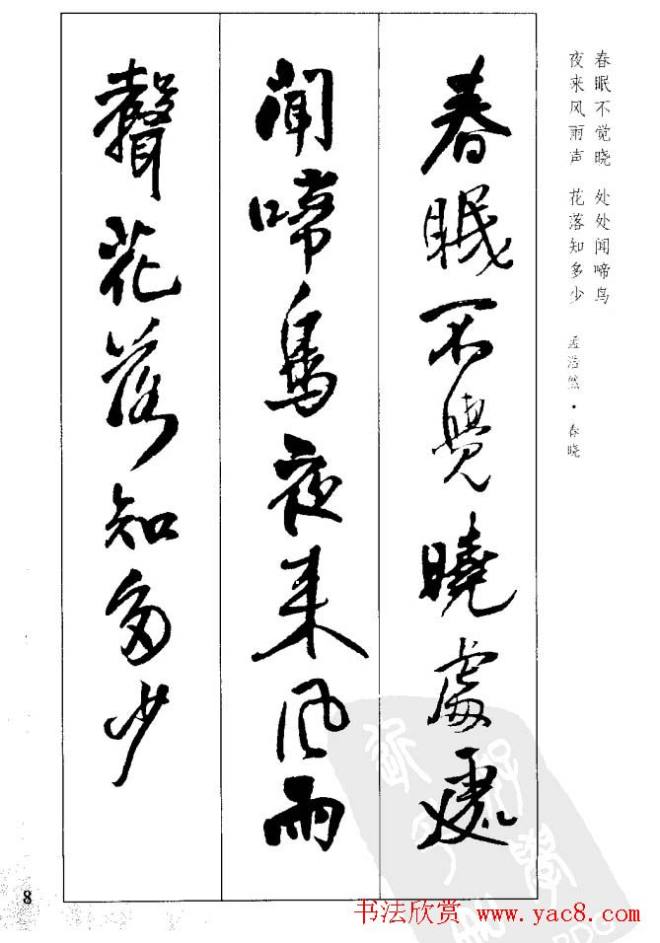 春眠不觉晓 处处闻啼鸟
夜来风雨声 花落知多少
孟浩然·春晓
春眠不覺曉處處
聞啼鳥夜来風雨
聲花落知多少
8
书法欣赏 www.yac8.com